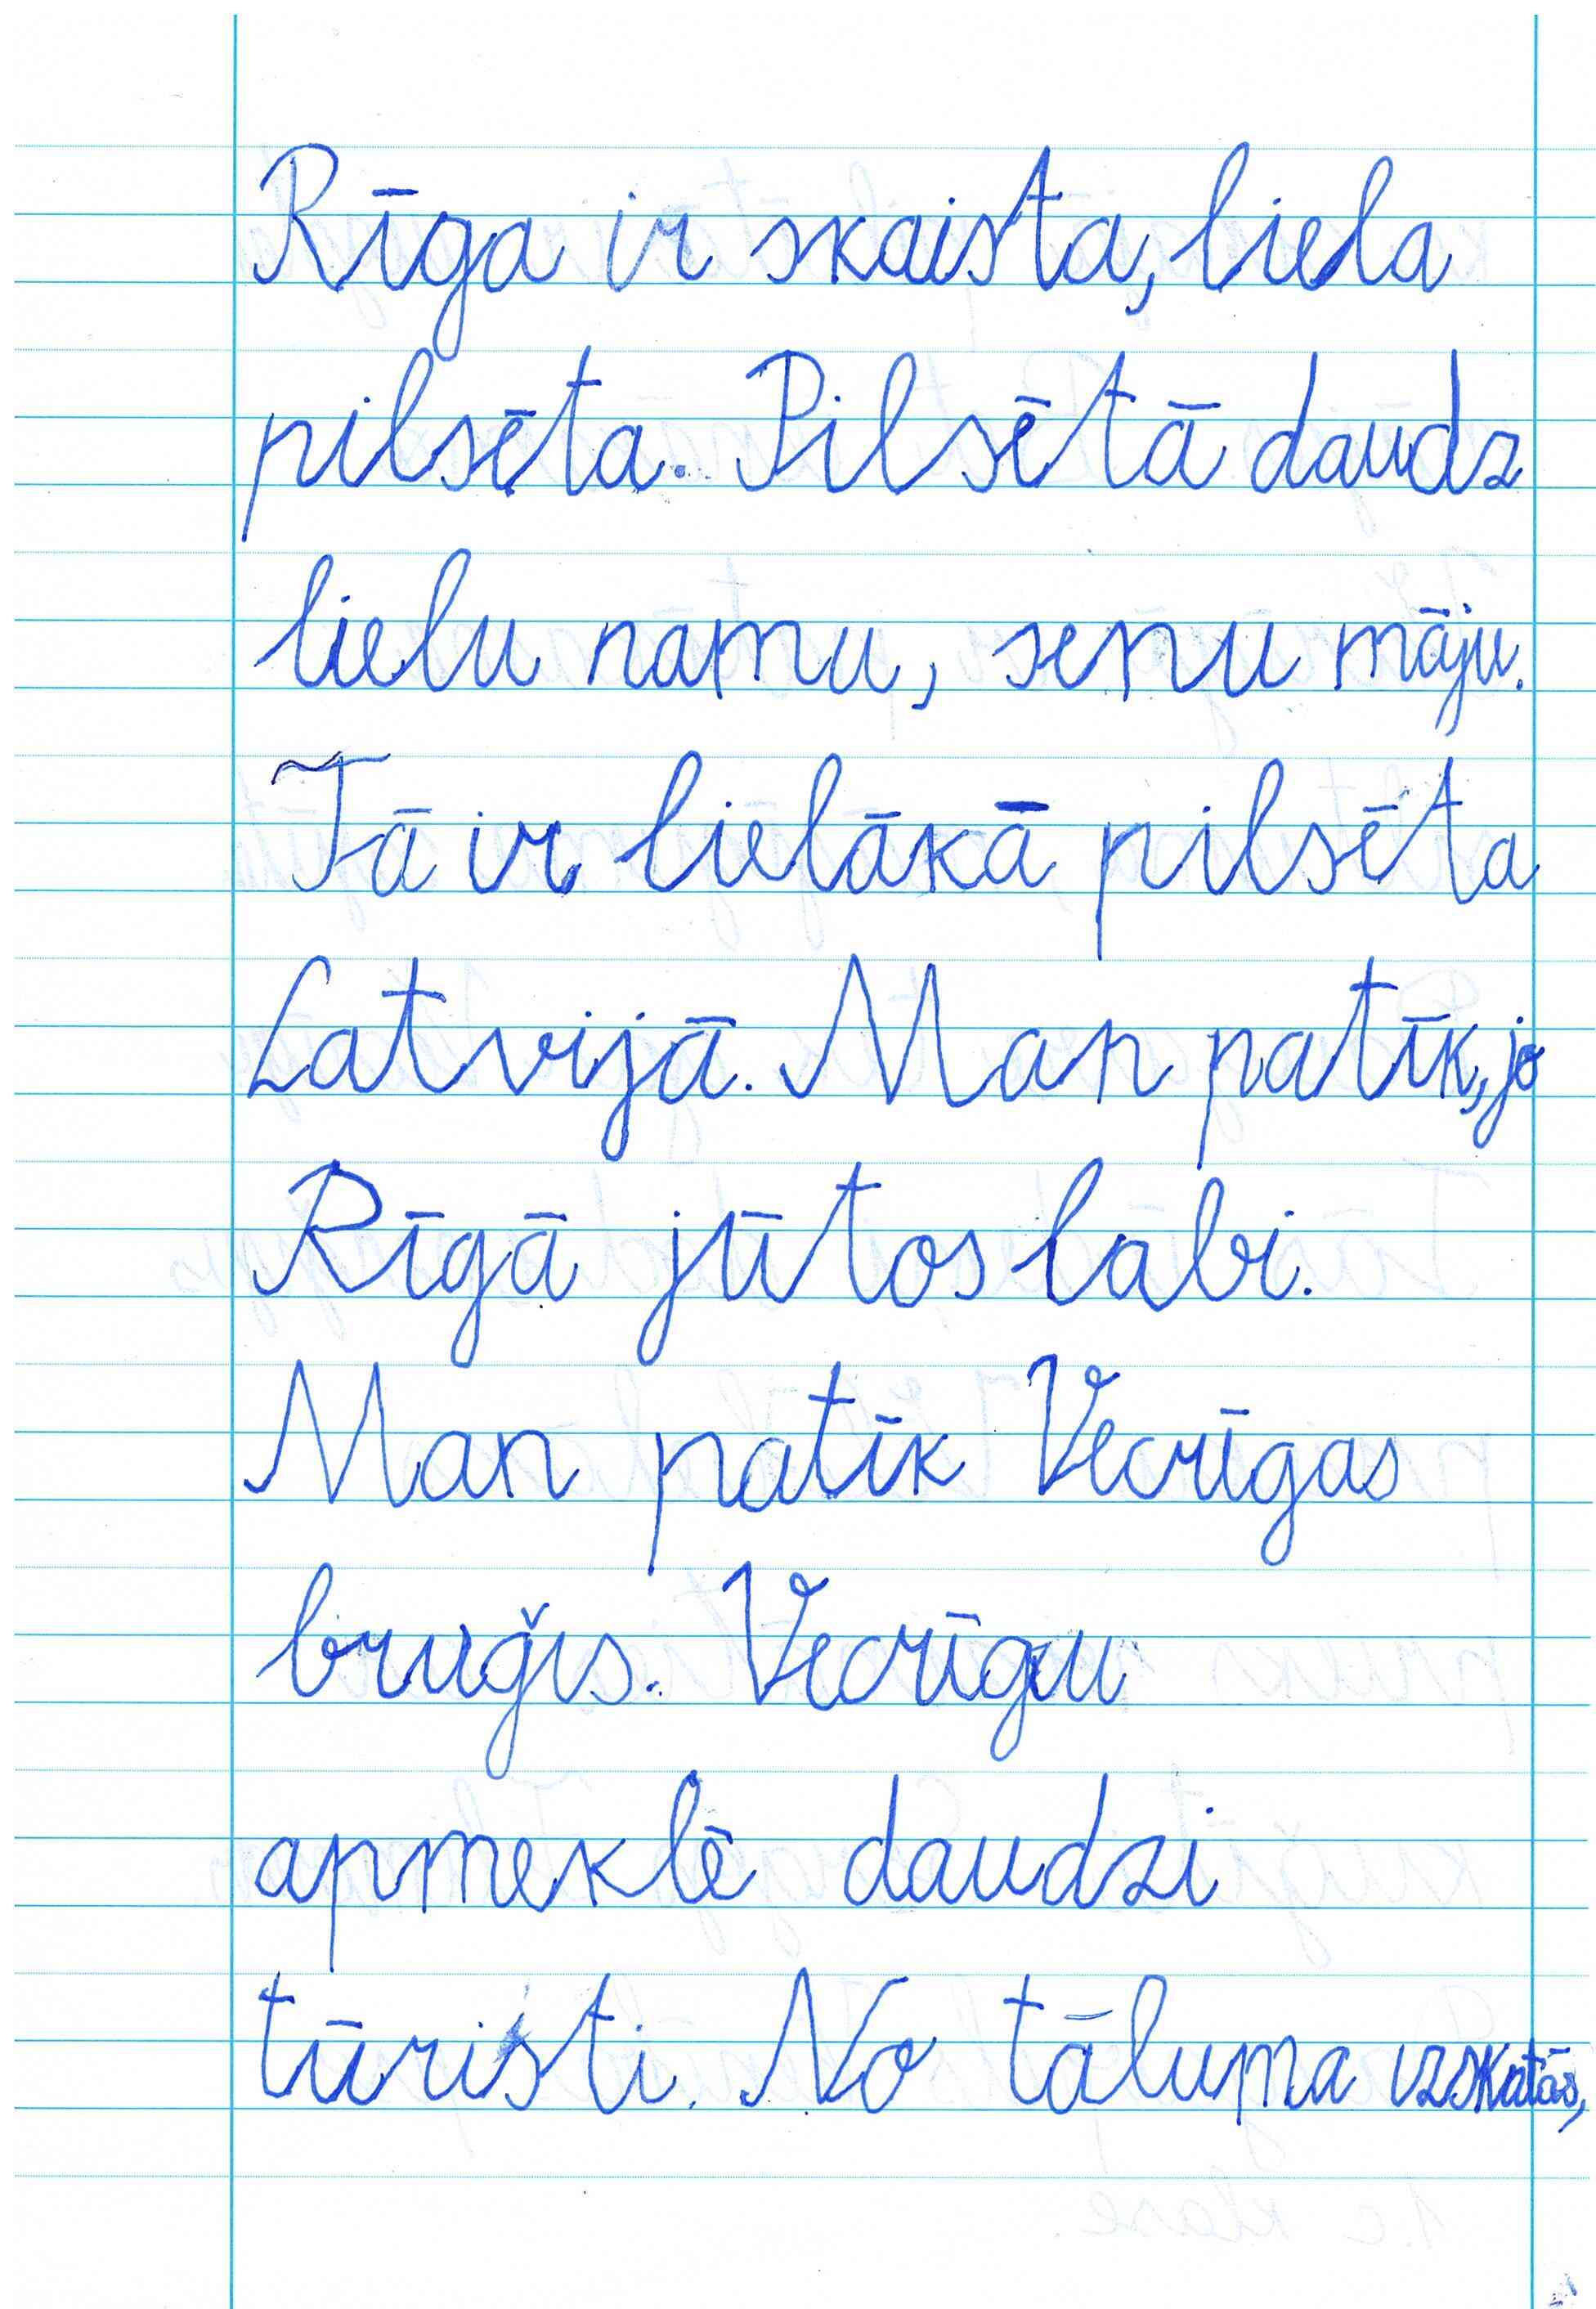 Rīga ir skaista, liela
pilsēta. Pilsētā daudz
lielu namu, senu māju.
Tā ir lielākā pilsēta
Latvijā. Man patīk, jo
Rīgā jūtos labi.
Man patīk Vecrīgas
bruģis. Vecrīgu
apmeklē daudzi
tūristi. No tāluma izskatās,